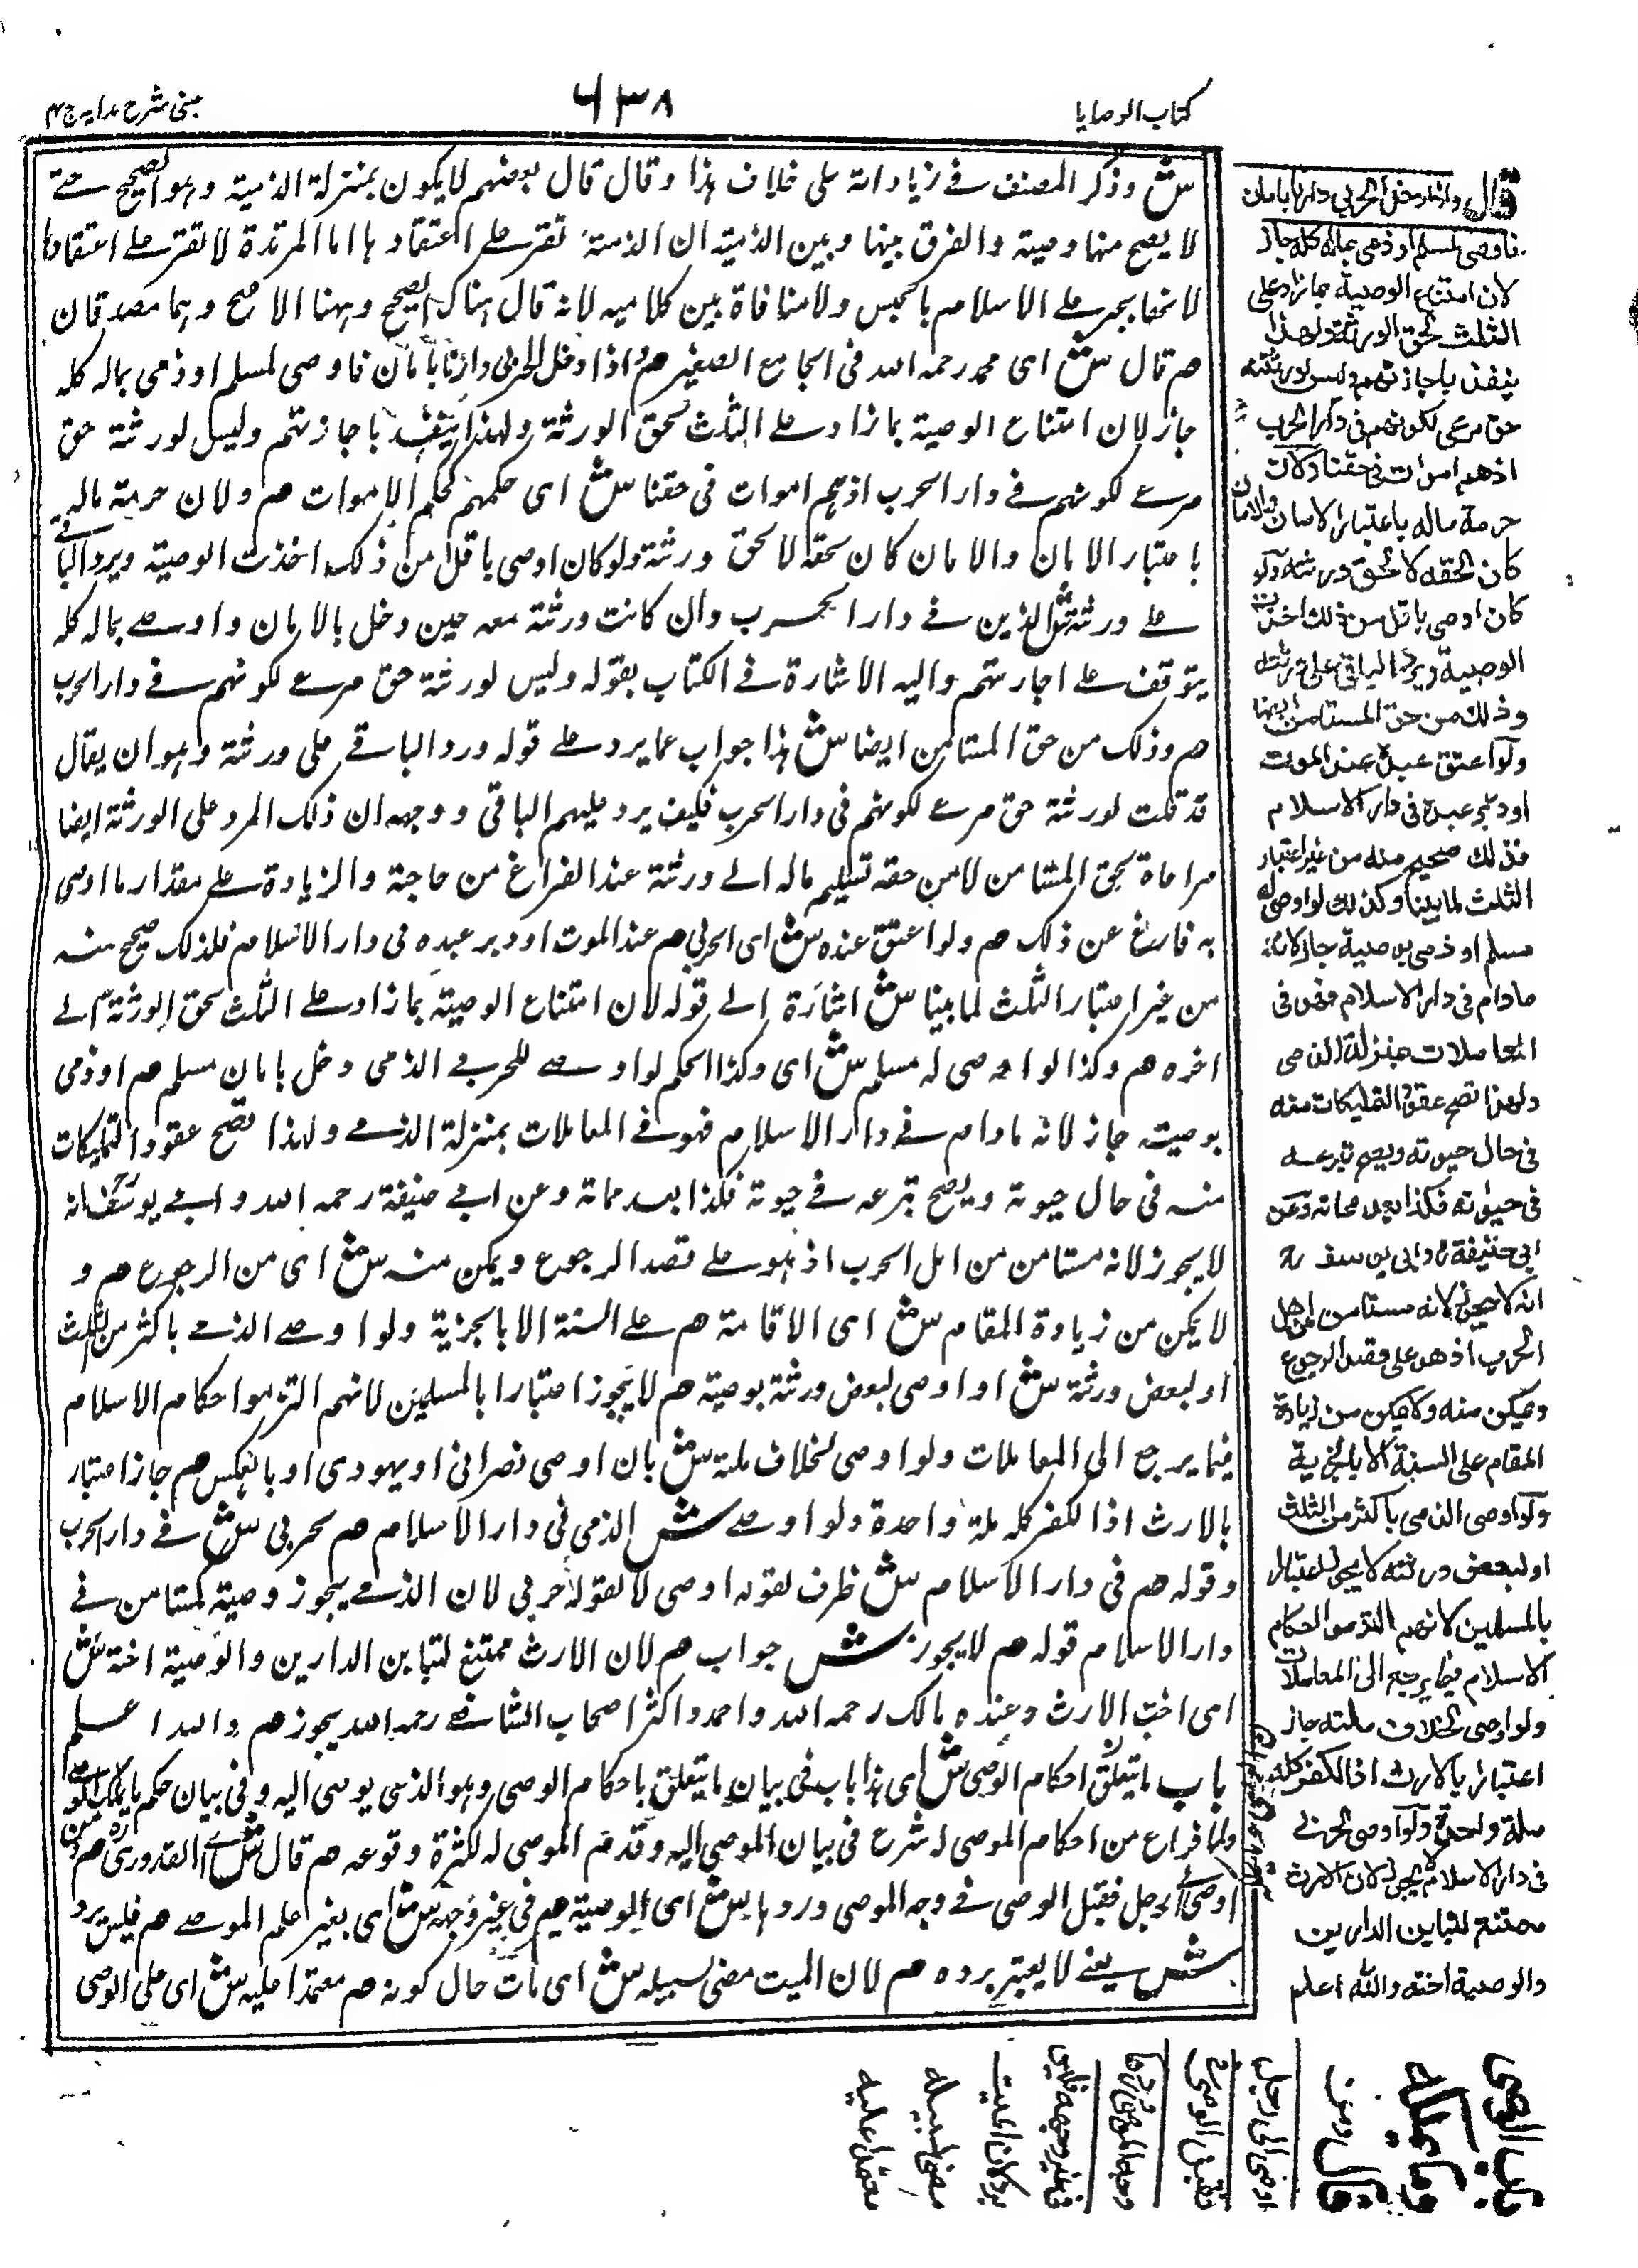 كتاب الوصايا
٦٣٨
عينى شرح هدايه ج ٤
ش وذكر المصنف فے زياداته على خلاف هذا وقال قال بعضهم لا يكون بمنزلة الذمية وهو الصحيح حتے
لا يصح منها وصية والفرق بينها وبين الذمية ان الذمية تقر علے اعتقادها اما المرتدة لا تقر علے اعتقادها
لانها يجبر علے الاسلام بالحبس ولا منافاة بين كلاميه لانه قال هناك الصحيح وههنا الاصح وهما مصدقان
هم قال ش اى محمد رحمه الله فى الجامع الصغير هم واذا دخل الحربى دارنا بامان فاوصى لمسلم او ذمى بماله كله
جاز لان امتناع الوصية بما زاد علے الثلث لحق الورثة ولهذا ينفذ باجازتهم وليس لورثته حق
مرعے لكونهم فے دار الحرب اذ هم اموات فى حقنا ش اى حكمهم كحكم الاموات هم ولان حرمة ماله
باعتبار الامان والامان كان لحقه لا لحق ورثته ولو كان اوصى باقل من ذلك اخذت الوصية ويرد الباقے
علے ورثته ش الذين فے دار الحرب وان كانت ورثته معه حين دخل بالامان واوصے بماله كله
يتوقف علے اجازتهم واليه الاشارة فے الكتاب بقوله وليس لورثته حق مرعے لكونهم فے دار الحرب
هم وذلك من حق المستامن ايضا ش هذا جواب عما يرد علے قوله ورد الباقے على ورثته وهو ان يقال
قد قلت لورثته حق مرعے لكونهم فى دار الحرب فكيف يرد عليهم الباقى ووجهه ان ذلك المرد على الورثة ايضا
مراعاة لحق المستامن لان من حقه تسليم ماله الے ورثته عند الفراغ من حاجته والزيادة علے مقدار ما اوصى
به فارغ عن ذلك هم ولو اعتق عنده ش اى الحربى هم عند الموت او دبر عبده فى دار الاسلام فلذلك صحيح منه
من غير اعتبار الثلث لما بينا ش اشارة الے قوله لان امتناع الوصية بما زاد علے الثلث لحق الورثة الے
اخره هم وكذا لو اوصى له مسلم ش اى وكذا الحكم لو اوصے للحربے الذمى دخل بامان مسلم هم او ذمى
بوصية جاز لانه ما دام فے دار الاسلام فهو فے المعاملات بمنزلة الذمے ولهذا تصح عقود التمليكات
منه فى حال حيوته ويصح تبرعه فے حيوته فكذا بعد مماته وعن ابے حنيفة رحمه الله وابے يوسف انه
لا يجوز لانه مستامن من اهل الحرب اذ هو علے قصد الرجوع ويمكن منه ش اى من الرجوع هم و
لا يمكن من زيادة المقام ش اى الاقامة هم علے السنة الا بالجزية ولو اوصے الذمے باكثر من الثلث
او لبعض ورثته ش او اوصى لبعض ورثته بوصية هم لا يجوز اعتبارا بالمسلمين لانهم التزموا احكام الاسلام
فيما يرجع الى المعاملات ولو اوصى لخلاف ملته ش بان اوصى نصرانى او يهودى او بالعكس هم جاز اعتبار
بالارث اذا لكفر كله ملة واحدة ولو اوصے ش الذمى فى دار الاسلام هم لحربى ش فے دار الحرب
وقوله هم فى دار الاسلام ش ظرف لقوله اوصى لا لقوله لحربى لان الذمے يجوز وصيته لمستامن فے
دار الاسلام قوله هم لا يجوز ش جواب هم لان الارث ممتنع لتباين الدارين والوصية اخته ش
اى اخت الارث وعنده مالك رحمه الله واحمد واكثر اصحاب الشافعے رحمه الله يجوز هم والله اعلم
باب ما يتعلق احكام الوصى ش اى هذا باب فى بيان ما يتعلق باحكام الوصى وهو الذى يوصى اليه وفى بيان حكم ما يملك الوصے
ولما فراغ من احكام الموصى له شرع فى بيان الموصى اليه وقدم الموصى له لكثرة وقوعه هم قال ش اے القدورى هم ومن
اوصى الے رجل فقبل الوصى فے وجه الموصى وردها ش اى الوصية هم فى غير وجهه ش اى بغير علم الموصے هم فليس برد
ش يعنے لا يعتبر برده هم لان الميت مضى لسبيله ش اى مات حال كونه هم معتمدا عليه ش اى على الوصى
قال واذا دخل الحربى دارنا بامان
فاوصى لمسلم او ذمى بماله كله جاز
لان امتناع الوصية بما زاد على
الثلث لحق الورثة ولهذا
ينفذ باجازتهم وليس لورثته
حق مرعى لكونهم فى دار الحرب
اذ هم اموات فى حقنا ولان
حرمة ماله باعتبار الامان والامان
كان لحقه لا لحق ورثته ولو
كان اوصى باقل من ذلك اخذت
الوصية ويرد الباقى على ورثته
وذلك من حق المستامن ايضا
ولو اعتق عبده عند الموت
او دبر عبده فى دار الاسلام
فذلك صحيح منه من غير اعتبار
الثلث لما بينا وكذلك لو اوصى له
مسلم او ذمى بوصية جاز لانه
ما دام فى دار الاسلام فهو فى
المعاملات بمنزلة الذمى
ولهذا تصح عقود التمليكات منه
فى حال حيوته ويصح تبرعه
فى حيوته فكذا بعد مماته وعن
ابى حنيفة وابى يوسف رح
انه لا يجوز لانه مستامن من اهل
الحرب اذ هو على قصد الرجوع
ويمكن منه ولا يمكن من زيادة
المقام على السنة الا بالجزية
ولو اوصى الذمى باكثر من الثلث
او لبعض ورثته لا يجوز اعتبارا
بالمسلمين لانهم التزموا احكام
الاسلام فيما يرجع الى المعاملات
ولو اوصى لخلاف ملته جاز
اعتبارا بالارث اذ الكفر كله
ملة واحدة ولو اوصى لحربى
فى دار الاسلام لا يجوز لان الارث
ممتنع لتباين الدارين
والوصية اخته والله اعلم
باب الوصى
وما يملكه
قال ومن
اوصى الى رجل
فقبل الوصى فى
وجه الموصى وردها
فى غير وجهه فليس
برد لان الميت
مضى لسبيله
معتمدا عليه